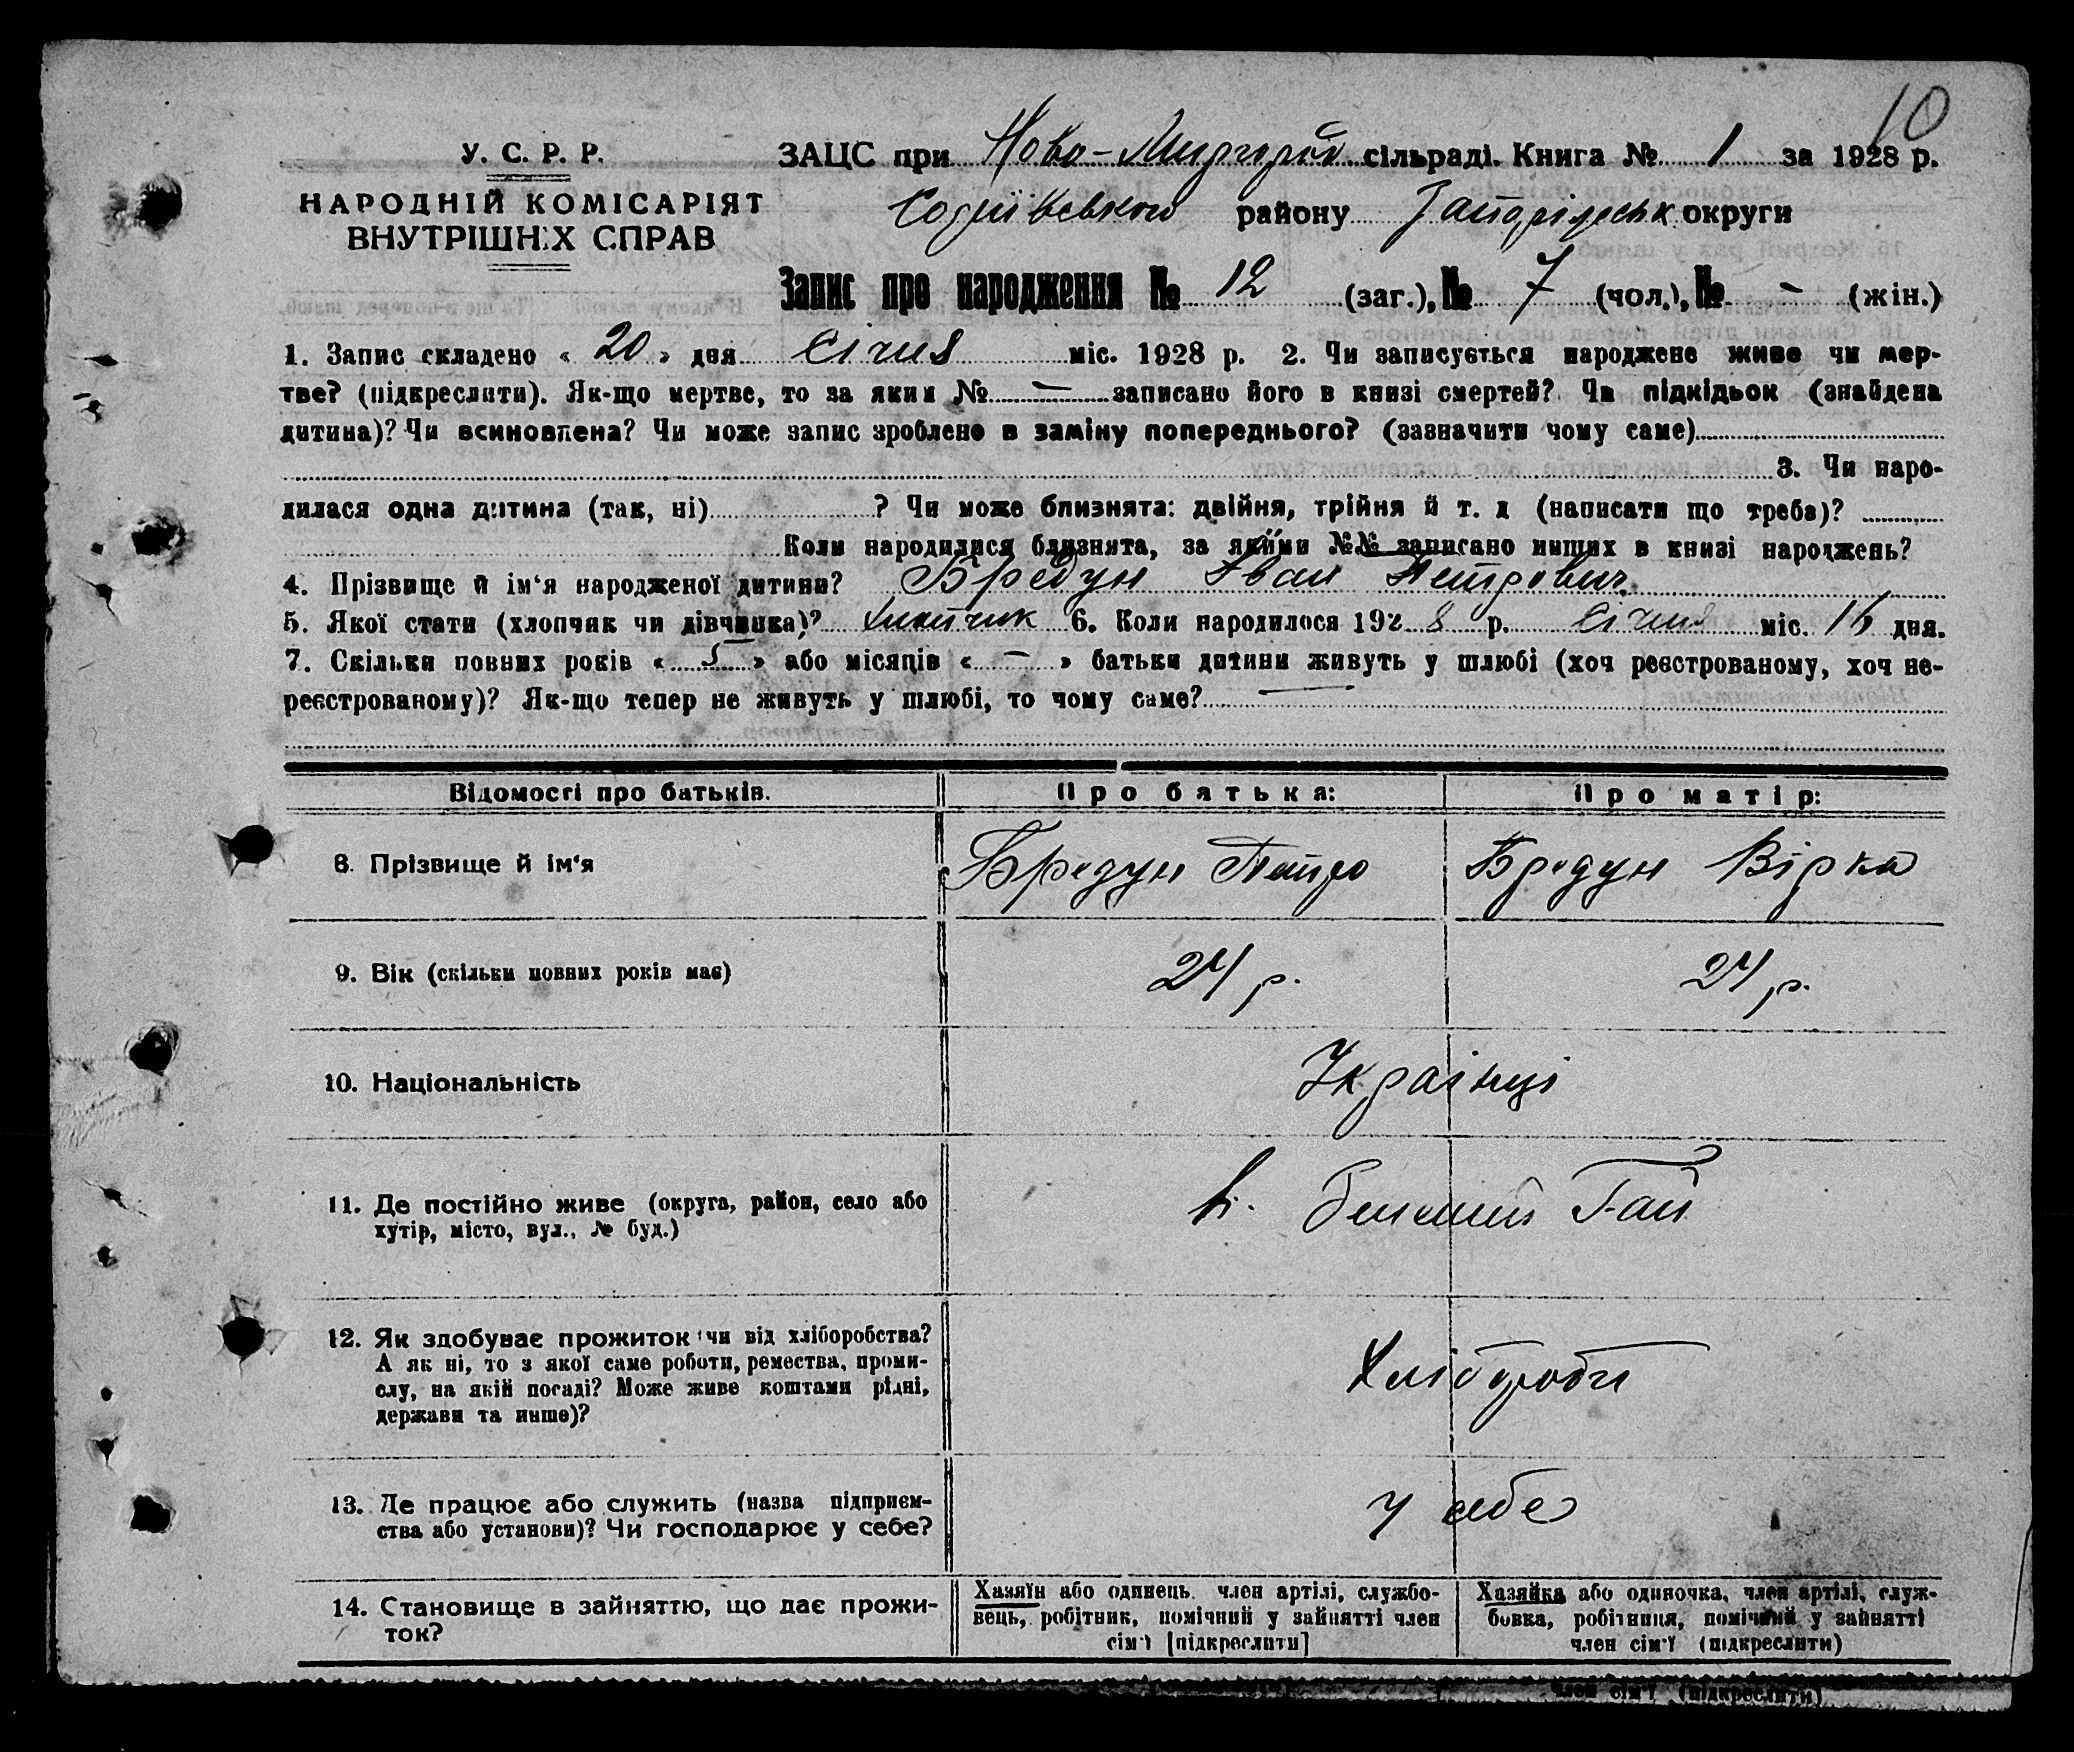 10
У. С. Р. Р.
НАРОДНІЙ КОМІСАРІЯТ
ВНУТРІШНІХ СПРАВ
ЗАЦС при Ново-Миргород сільраді. Книга № 1 за 1928 р.
району округи
Запис про народження № 12 (заг.), № 7 (чол.), № - (жін.)
1. Запис складено « 20 » дня Січня міс. 1928 р. 2. Чи записується народжене живе чи мер-
тве? (підкреслити). Як-що мертве, то за яким № — записано його в книзі смертей? Чи підкідьок (знайдена
дитина)? Чи всиновлена? Чи може запис зроблено в заміну попереднього? (зазначити чому саме)
3. Чи наро-
дилася одна дитина (так, ні) ? Чи може близнята: двійня, трійня й т. д (написати що треба)?
Коли народилися близнята, за якими №№ записано инших в книзі народжень?
4. Прізвище й ім‘я народженої дитини? Бредун Іван Петрович.
5. Якої стати (хлопчик чи дівчинка)? хлопчик 6. Коли народилося 192 8 р. Січня міс. 16 дня.
7. Скільки повних років « 5 » або місяців « — » батьки дитини живуть у шлюбі (хоч реєстрованому, хоч не-
реєстрованому)? Як-що тепер не живуть у шлюбі, то чому саме? —
Відомості про батьків. Про батька: Про матір:
8. Прізвище й ім‘я Бредун Петро Бредун Вірка
9. Вік (скільки повних років має) 24 р. 24 р.
10. Національність Українці
11. Де постійно живе (округа, район, село або
хутір, місто, вул., № буд.)
Гай
12. Як здобуває прожиток чи від хліборобства?
А як ні, то з якої саме роботи, ремества, проми-
слу, на якій посаді? Може живе коштами рідні,
держави та инше)?
Хлібороби
13. Де працює або служить (назва підприєм-
ства або установи)? Чи господарює у себе?
у себе
14. Становище в зайняттю, що дає прожи-
ток?
Хазяїн або одинець, член артілі, службо-
вець, робітник, помічний у зайнятті член
сім‘ї [підкреслити]
Хазяйка або одиночка, член артілі, служ-
бовка, робітниця, помічний у зайнятті
член сім‘ї (підкреслити)
член сім‘ї (підкреслити)